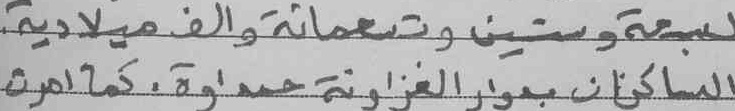 لسبعة وستين وتسعمائة والف ميلادية.
الساكنان بدوار الغزاونة حمداوة. كما امرت